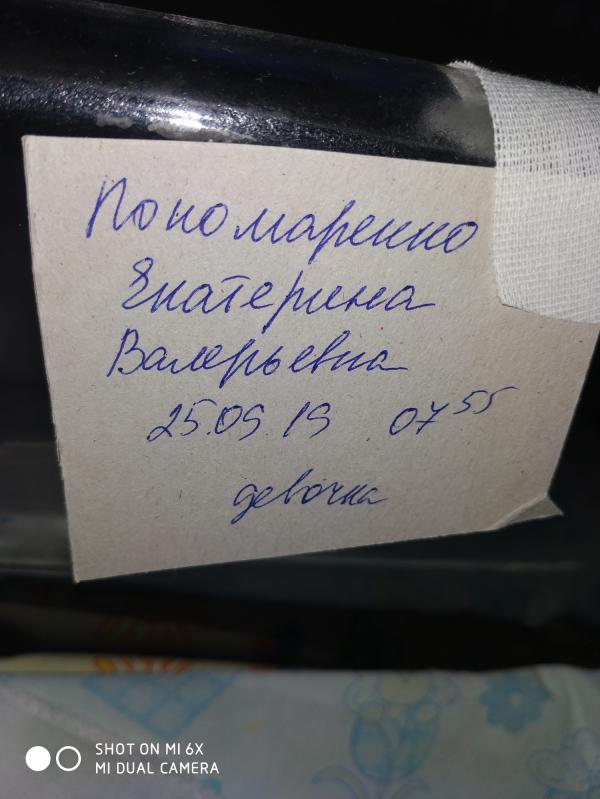 Пономаренко
Екатерина
Валерьевна
25.09.19 07⁵⁵
девочка
SHOT ON MI 6X
MI DUAL CAMERA